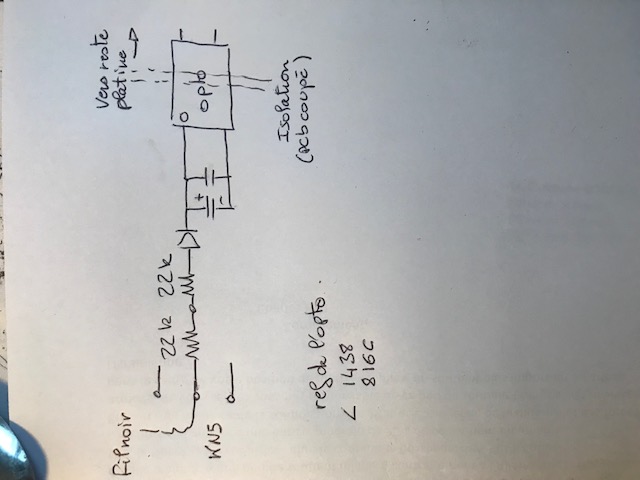 Fil noir
WN5
22k 22k
+
-
opto
Vers reste
platine
Isolation
(pcb coupé)
ref de l'opto.
L 1438
816C